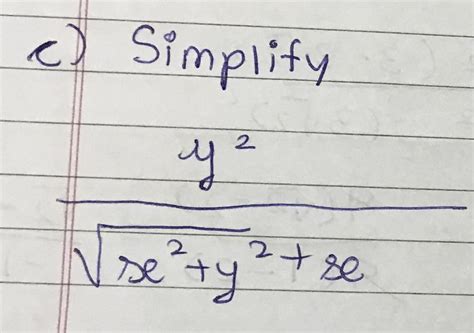 c) Simplify
y²
√x²+y² + x